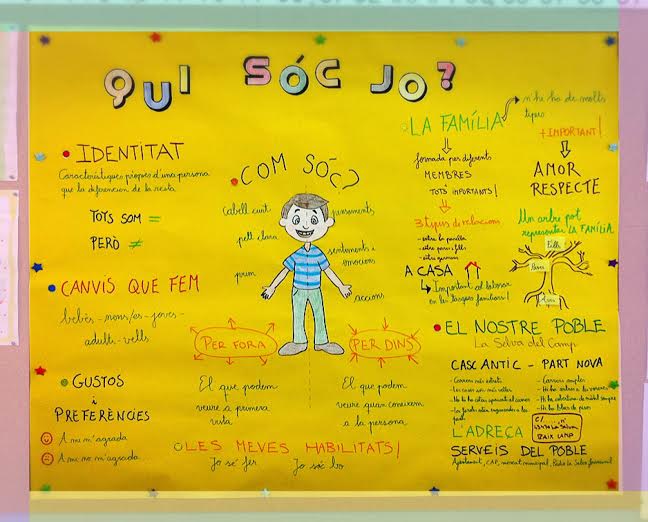 QUI SÓC JO?
IDENTITAT
Característiques pròpies d'una persona
que la diferencien de la resta.
TOTS SOM =
PERÒ ≠
CANVIS QUE FEM
bebès - nens/es - joves -
adults - vells
GUSTOS
i
PREFERÈNCIES
A mi m'agrada
A mi no m'agrada
COM SÓC?
Cabell curt
pell clara
prim
pensaments
sentiments i
emocions
accions
PER FORA
El que podem
veure a primera
vista
PER DINS
El que podem
veure quan coneixem
a la persona.
LES MEVES HABILITATS!
Jo sé fer
Jo sóc bo
LA FAMÍLIA
n'hi ha de molts
tipus
formada per diferents
MEMBRES
TOTS IMPORTANTS!
3 tipus de relacions
- entre la parella
- entre pares i fills
- entre germans
A CASA
Important col·laborar
en les tasques familiars!
+ IMPORTANT!
AMOR
RESPECTE
Un arbre pot
representar LA FAMÍLIA
Fills
Pares
Avis
EL NOSTRE POBLE
La Selva del Camp
CASC ANTIC - PART NOVA
- Carrers més estrets
- Les cases són més velles
- No hi ha
- Carrers amples
- Hi ha
- Hi ha
- Hi ha blocs de pisos
L'ADREÇA
C/
BAIX CAMP
SERVEIS DEL POBLE
Ajuntament, CAP, mercat municipal, Ràdio la Selva